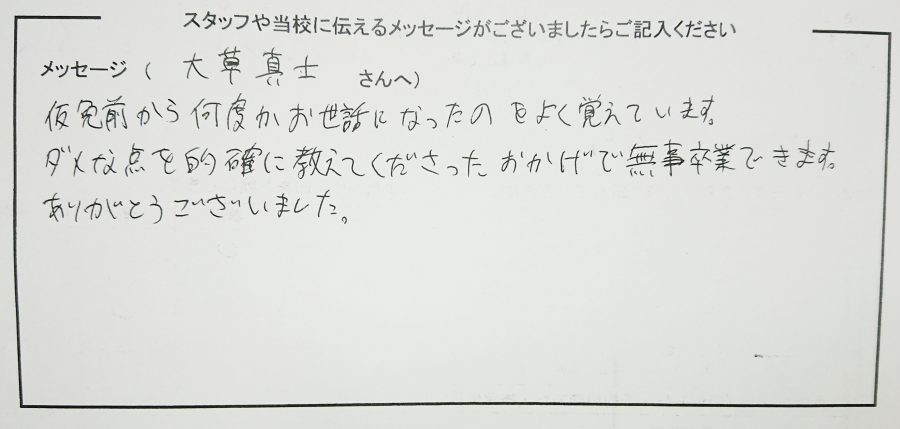 スタッフや当校に伝えるメッセージがございましたらご記入ください
メッセージ ( 大草真士 さんへ)
仮免前から何度かお世話になったのをよく覚えています。
ダメな点を的確に教えてくださったおかげで無事卒業できます。
ありがとうございました。